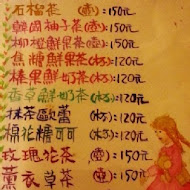 石榴茶(壺):150元
韓國柚子茶(壺):150元
柳橙鮮果茶(壺):150元
焦糖鮮奶茶(杯):120元
榛果鮮奶茶(杯):120元
香草鮮奶茶(杯):120元
抹茶歐蕾(杯):120元
棉花糖可可(杯):120元
玫瑰花茶(壺):150元
薰衣草茶(壺):150元